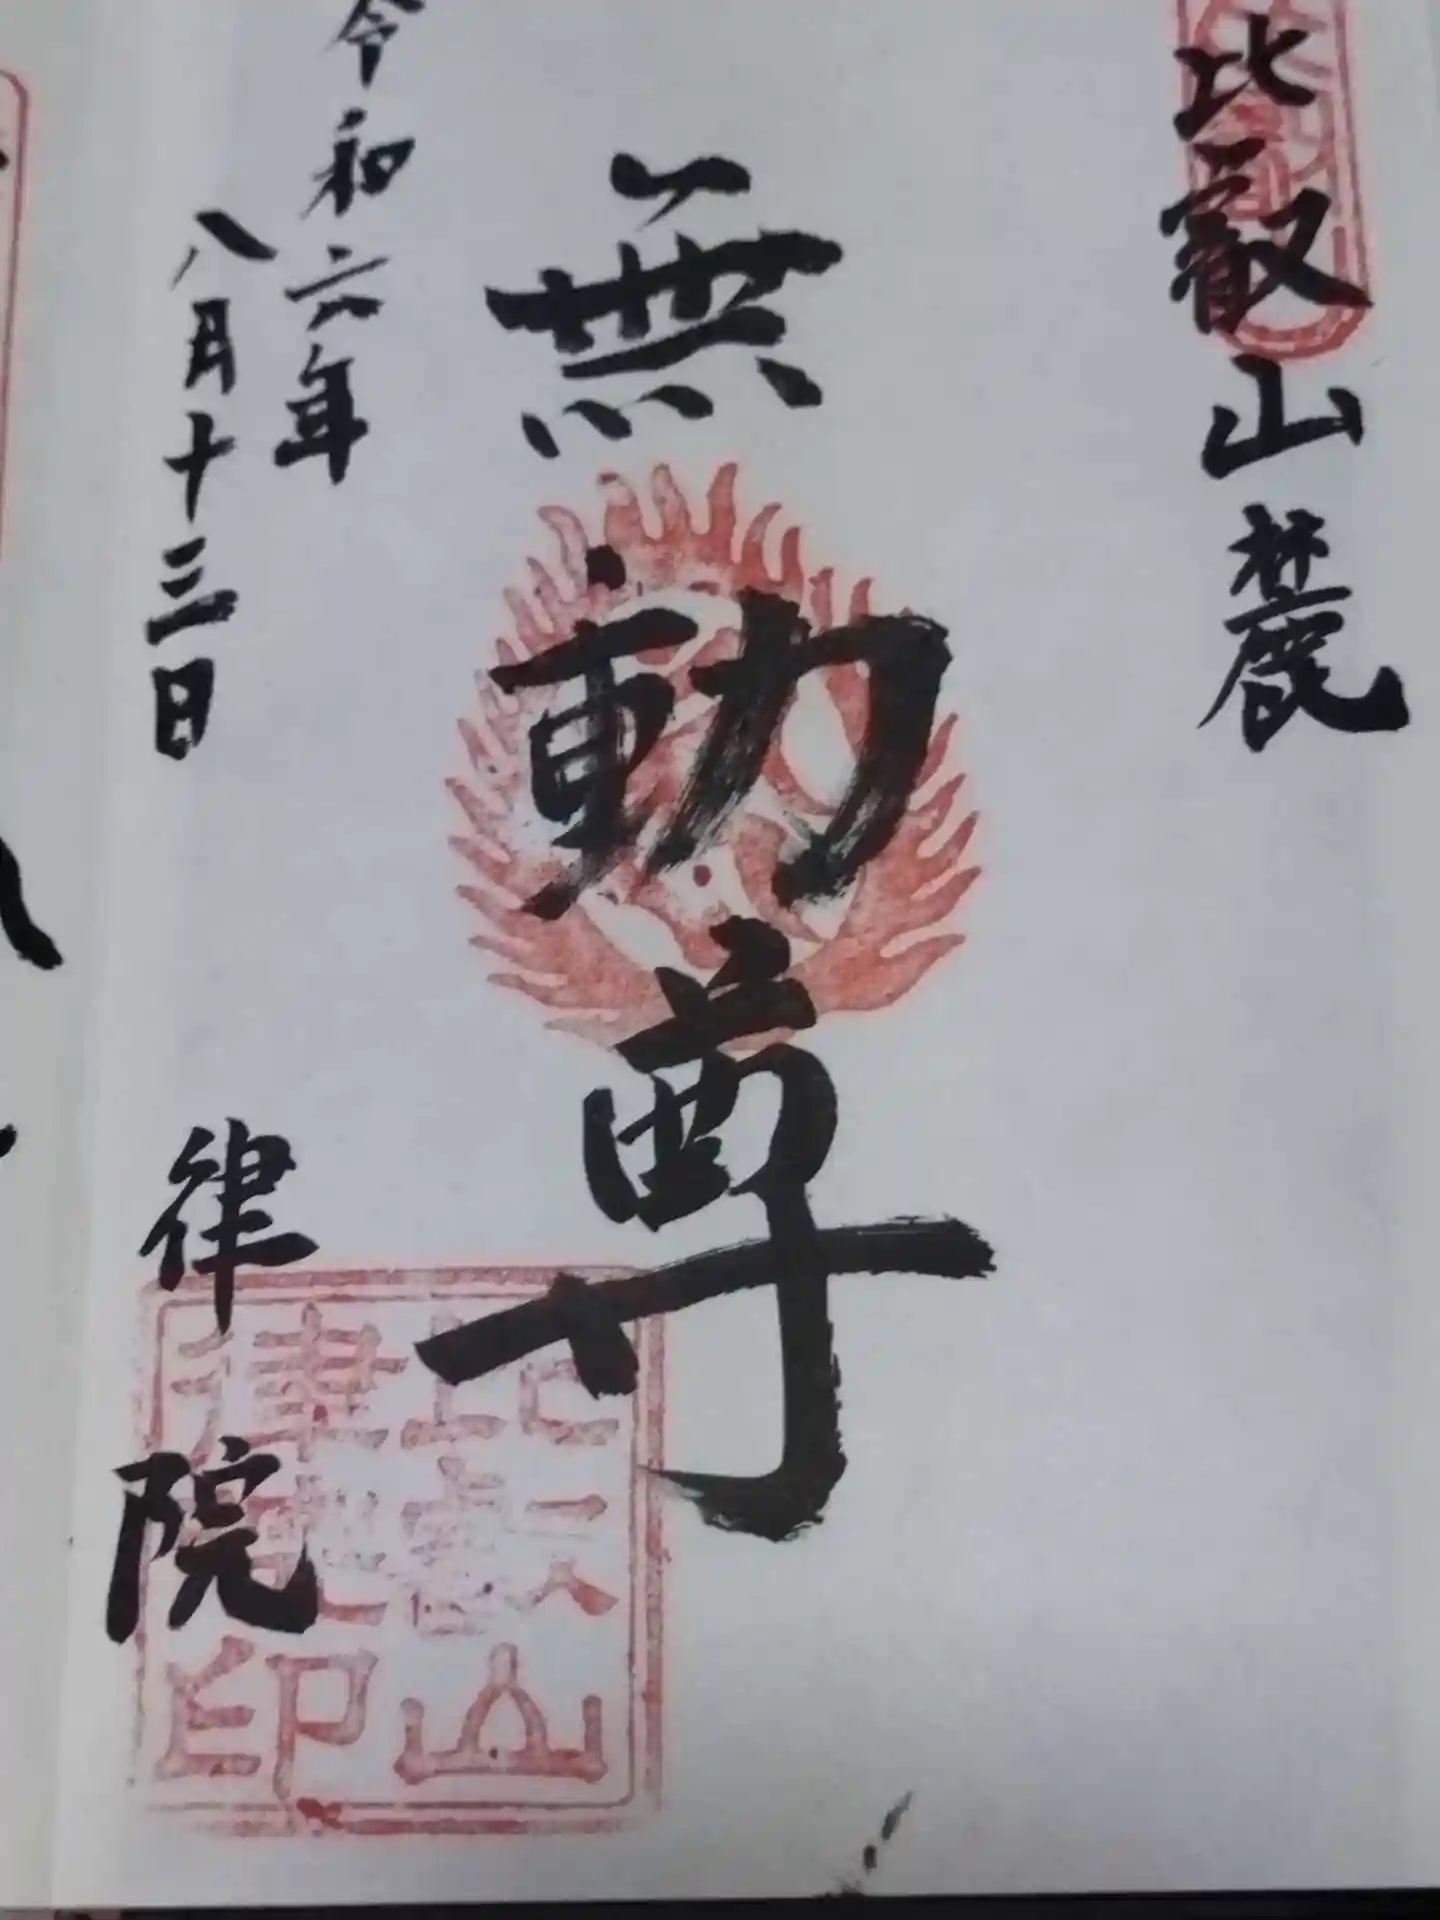 比叡山麓
無動尊
令和六年
八月十三日
律院
比叡山
律院印